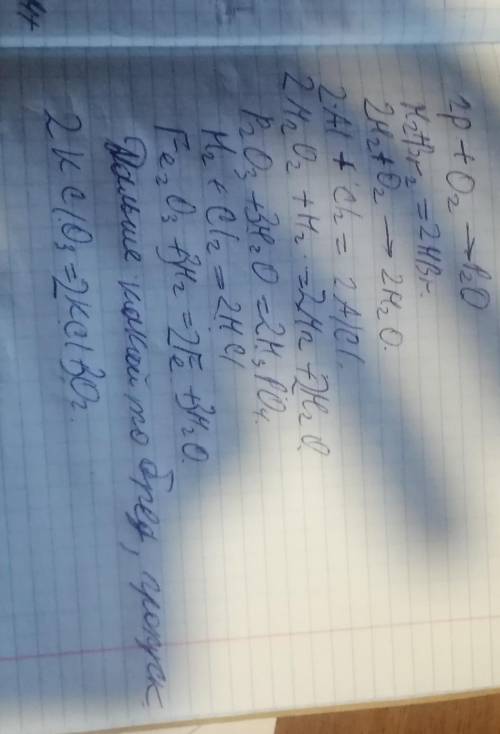 2p + O2 → P2O
H2+Br2 = 2HBr.
2H2+O2 → 2H2O.
2Al + Cl2 = 2AlCl.
2H2O2 + H2 = 2H2 + 2H2O
P2O3 + 3H2O = 2H3PO4.
H2 + Cl2 = 2HCl
Fe2O3 + 3H2 = 2Fe + 3H2O.
Дальше какой то бред, пропуск.
2KClO3 = 2KCl+3O2.